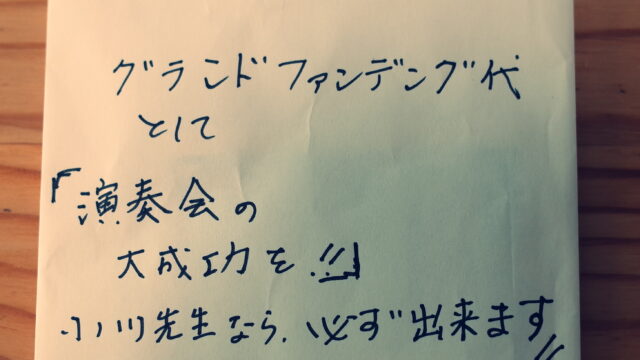 グランドファンデング代
として
「演奏会の
大成功を!!」
小川先生なら、必ず出来ます